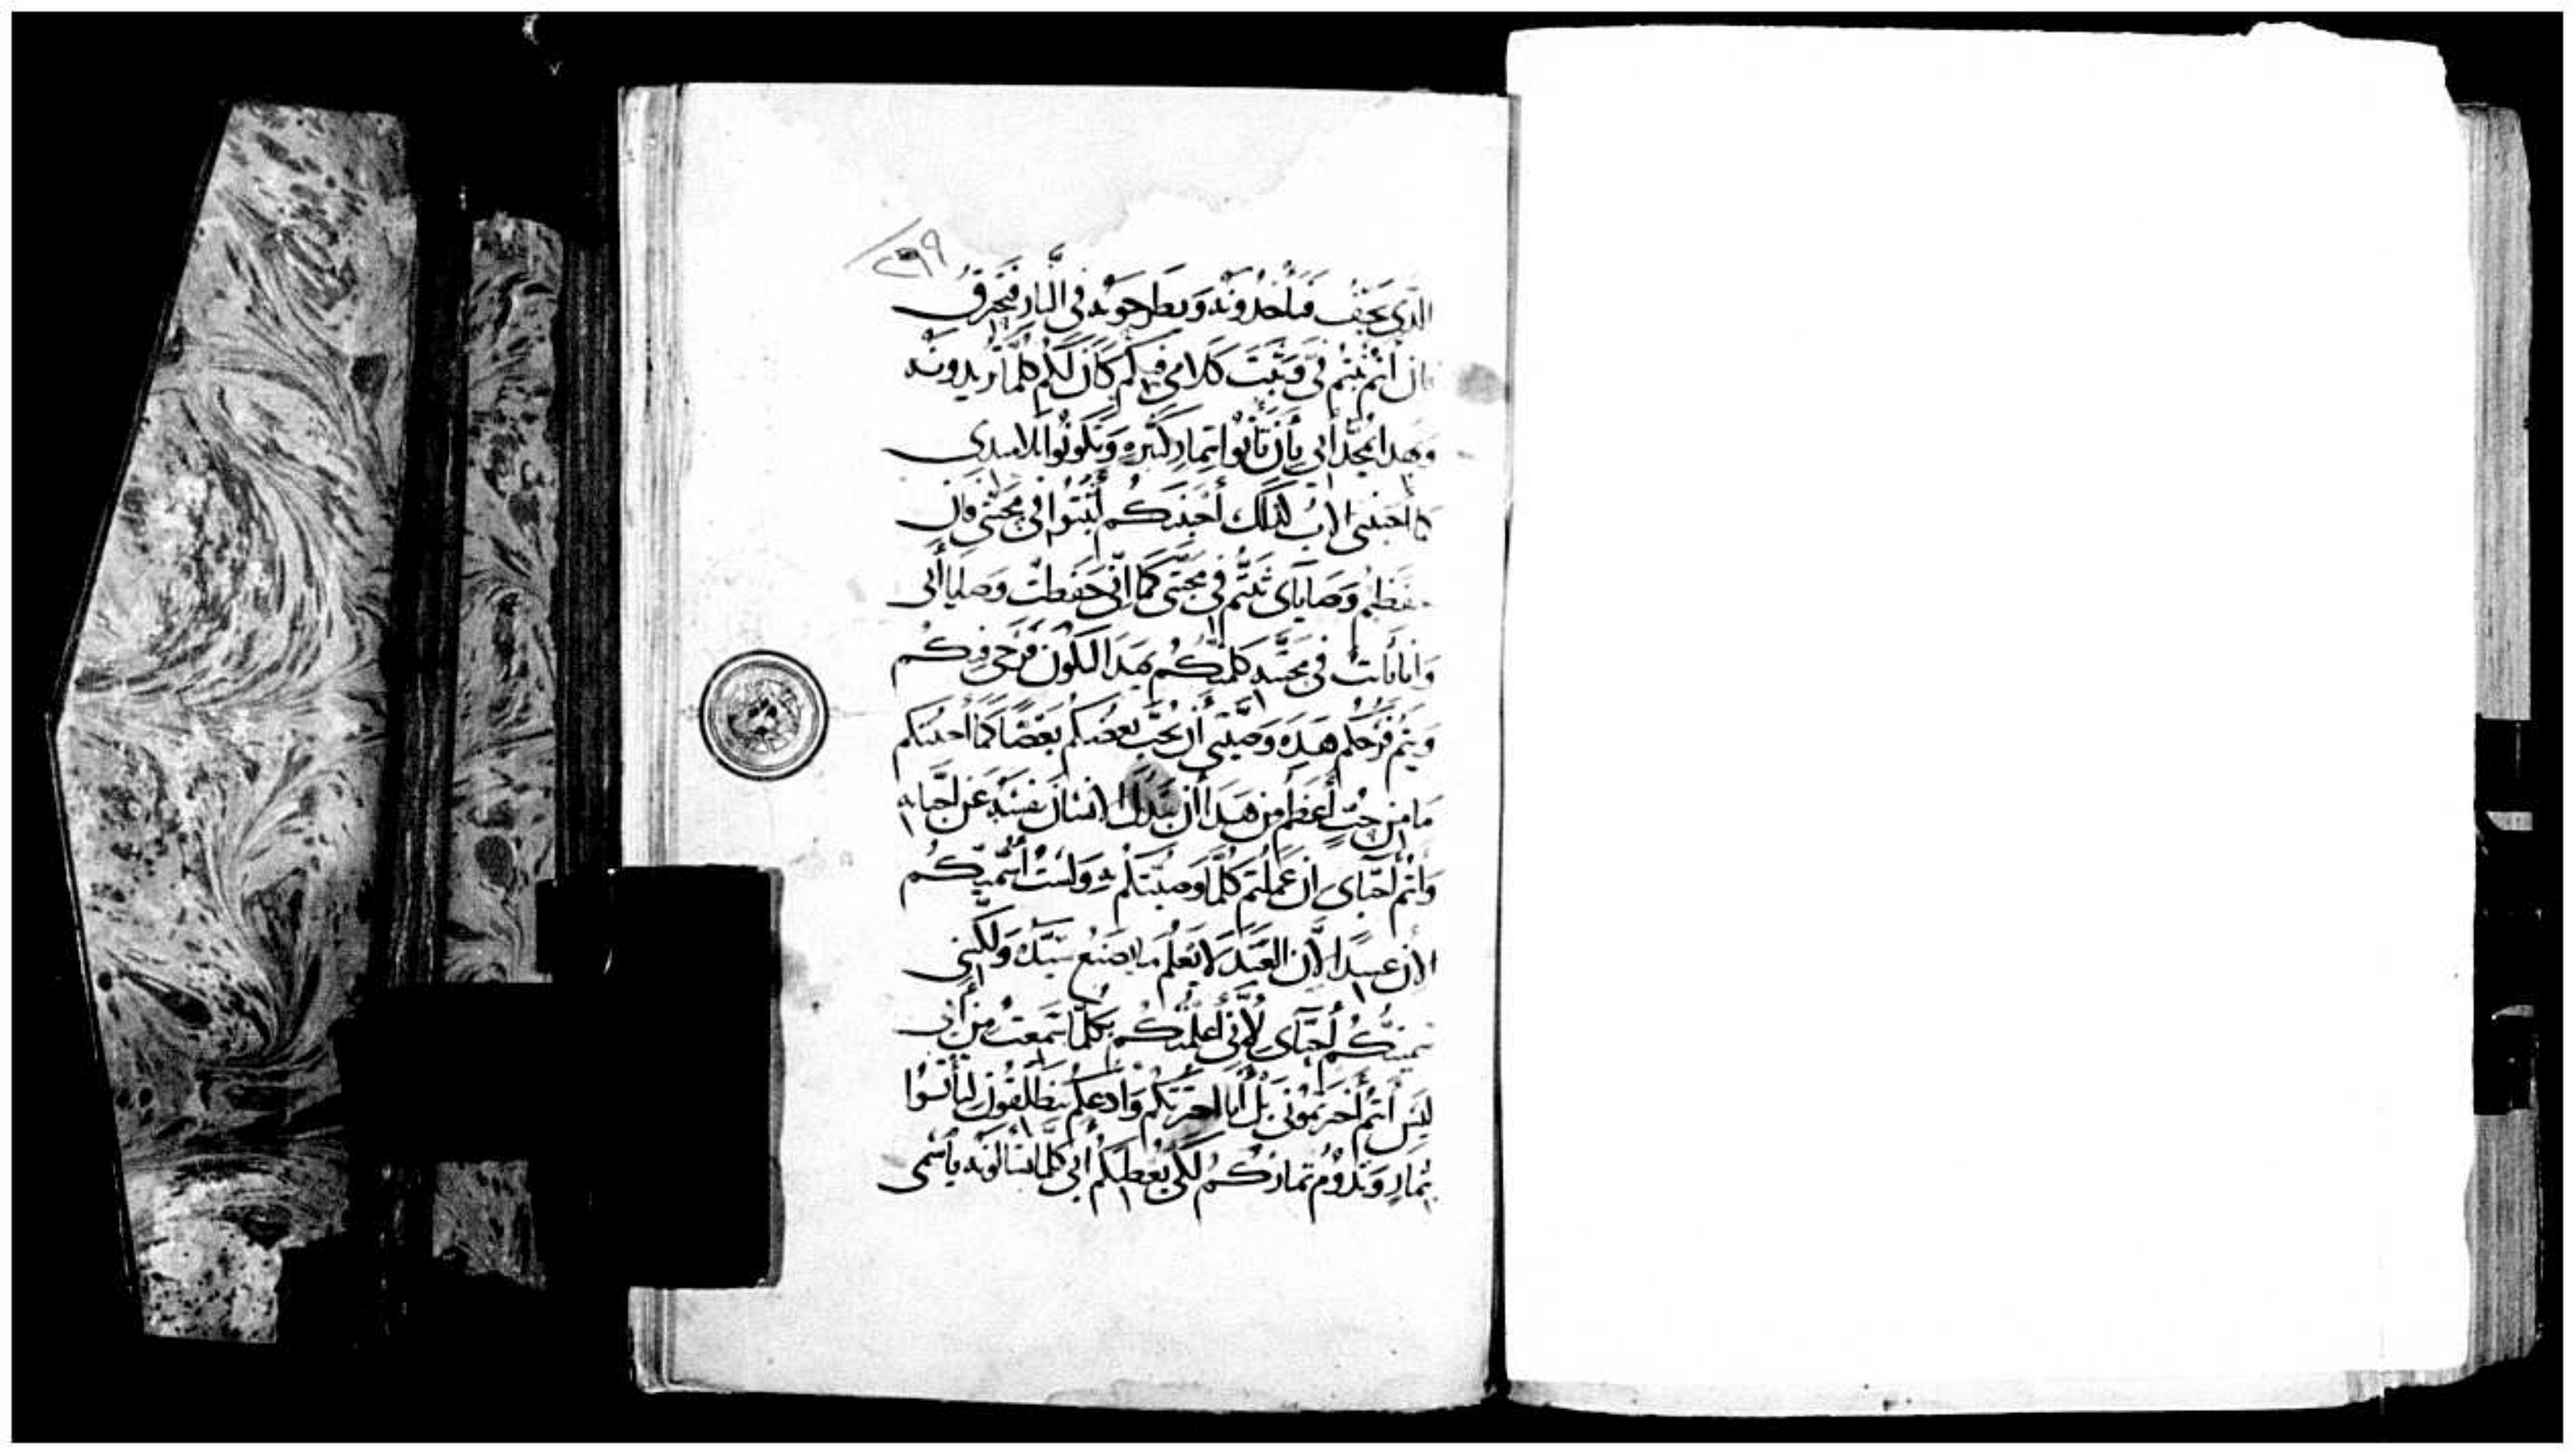 ٢٩٩
الَّذي يَجِفُّ فيَأخذُونَه وَيَطرَحُونَه في النار فَيَحترقُ
فان أنتم ثبتُم فيَّ وَثَبَتَ كَلامي فيكم كَانَ لكُم كلما تُريدونَه
وَبهدا يمجَّد أبي بِأَن تَأتوا بِثمارٍ كثيرهٍ وَتكونُوا تلاميدي
كما أحَبني الابُ كذلك أحبَبتكُم أثبتُوا في محَبَّتي فان
حفظتم وَصَايَايَ ثَبَتُّم في مَحَبَّتي كما انِّي حَفظتُ وصَايا أبي
وَأنا ثابت في محبَّته كلمتكُم بهَدا ليكون فَرَحي فيكُم
وَيتم فَرَحُكم هَدِه وَصيَّتي أن يُحبَّ بَعضُكم بَعضًا كما أحببتكم
مَا مِن حُبٍّ أعظم مِن هَدا أن يَبْدل الانسَان نفسَه عَن أحبايه
وَأنتم أحبَّاي ان عَملتم كلَّما وصيتكم به وَلَستُ أسَمّيكُم
الان عبيدا لأن العَبدَ لا يَعلم مَا يصنعُ سَيّدُه وَلكنّي
سميتكُم أحبَّاي لأنّي أعلمتكُم بكلّما سَمعتُ مِن أبي
ليسَ أنتم أخترتموني بَل أنا اخترتكم وَادعكم تنطَلقون لتأتُوا
بثمارٍ وَتدُومُ ثماركُم لكَي يُعطيكم أبي كلّما تسَالونَه بِأسمي